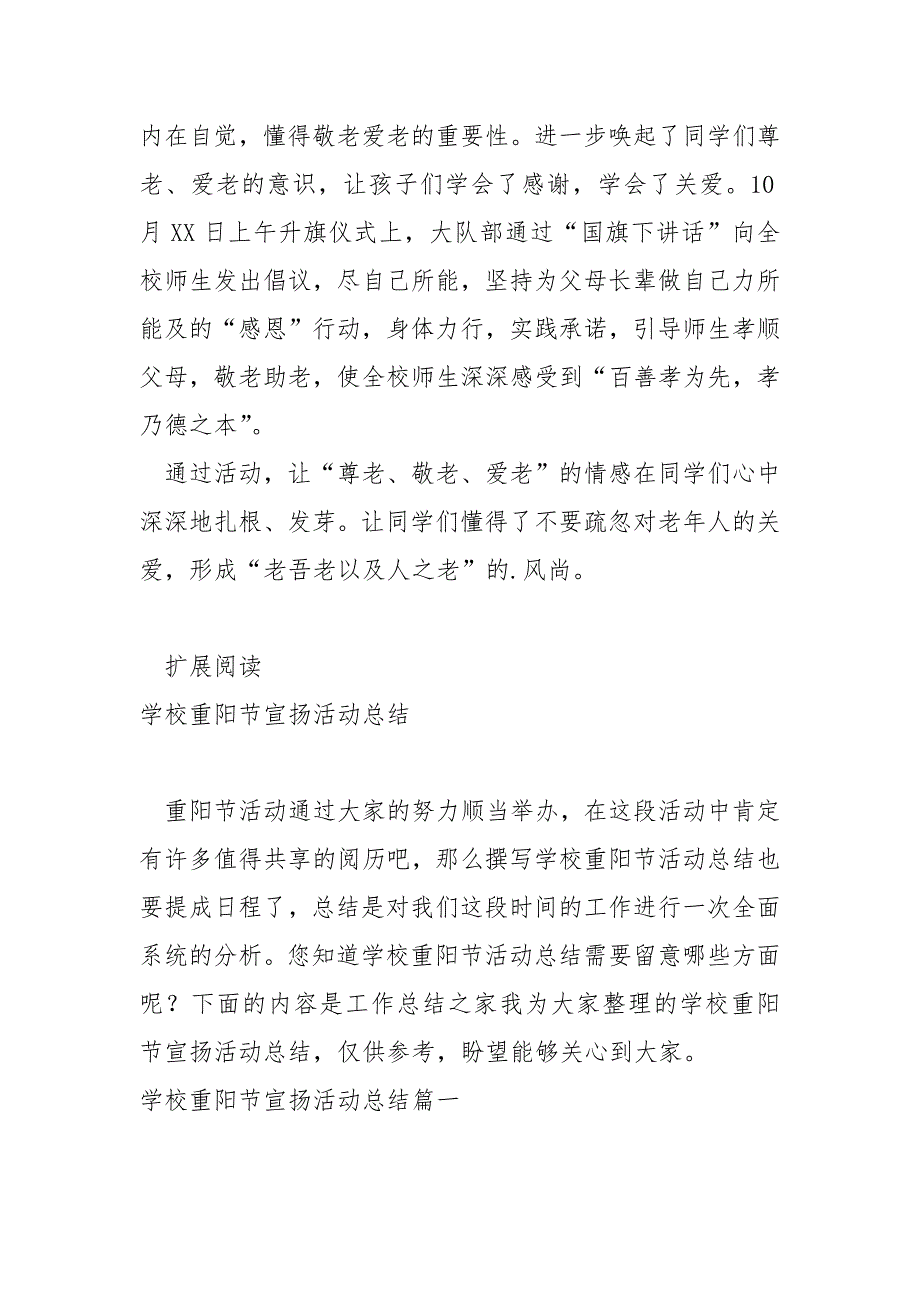 内在自觉，懂得敬老爱老的重要性。进一步唤起了同学们尊
老、爱老的意识，让孩子们学会了感谢，学会了关爱。10
月 XX 日上午升旗仪式上，大队部通过“国旗下讲话”向全
校师生发出倡议，尽自己所能，坚持为父母长辈做自己力所
能及的“感恩”行动，身体力行，实践承诺，引导师生孝顺
父母，敬老助老，使全校师生深深感受到“百善孝为先，孝
乃德之本”。
通过活动，让“尊老、敬老、爱老”的情感在同学们心中
深深地扎根、发芽。让同学们懂得了不要疏忽对老年人的关
爱，形成“老吾老以及人之老”的.风尚。
扩展阅读
学校重阳节宣扬活动总结
重阳节活动通过大家的努力顺当举办，在这段活动中肯定
有许多值得共享的阅历吧，那么撰写学校重阳节活动总结也
要提成日程了，总结是对我们这段时间的工作进行一次全面
系统的分析。您知道学校重阳节活动总结需要留意哪些方面
呢？下面的内容是工作总结之家我为大家整理的学校重阳
节宣扬活动总结，仅供参考，盼望能够关心到大家。
学校重阳节宣扬活动总结篇一